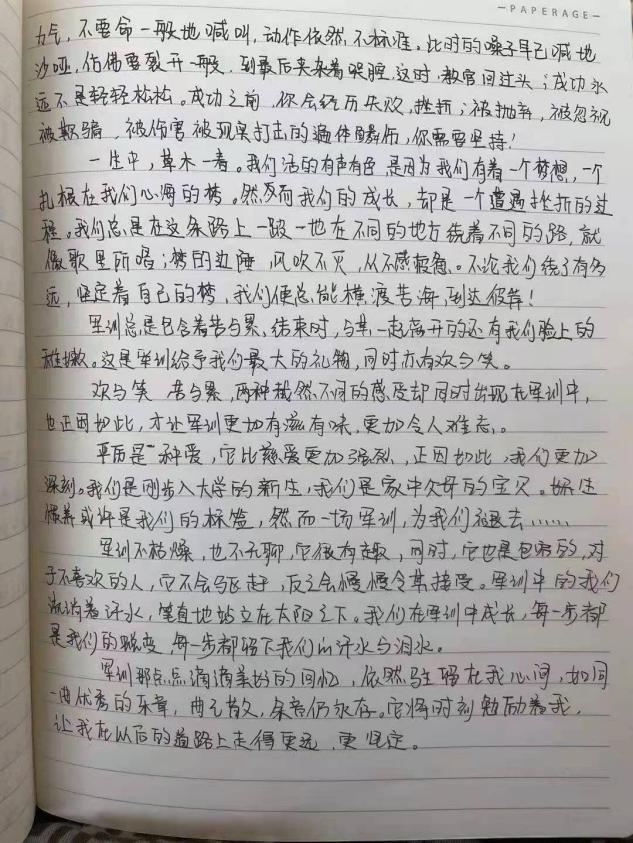 —PAPERAGE—
力气，不要命一般地喊叫，动作依然不标准。此时的嗓子早已喊地
沙哑，仿佛要裂开一般，到最后夹杂着哭腔，这时，教官回过头；成功永
远不是轻轻松松。成功之前，你会经历失败，挫折；被抛弃，被忽视
被欺骗，被伤害被现实打击的遍体鳞伤，你需要坚持！
一生中，草木一春。我们活的有声有色是因为我们有着一个梦想，一个
扎根在我们心海的梦。然而我们的成长，却是一个遭遇挫折的过
程。我们总是在这条路上一跛一地在不同的地方绕着不同的路，就
像歌里所唱；梦的边陲，风吹不灭，从不感疲惫。不论我们绕了有多
远，坚定着自己的梦，我们便总能横渡苦海，到达彼岸！
军训总是包含着苦与累，结束时，与其一起离开的还有我们脸上的
稚嫩。这是军训给予我们最大的礼物，同时亦有欢与笑。
欢与笑 苦与累，两种截然不同的感受却同时出现在军训中，
也正因如此，才让军训更加有滋有味，更加令人难忘。
严厉是一种爱，它比慈爱更加强烈，正因如此，我们更加
深刻。我们是刚步入大学的新生，我们是家中欠好的宝贝。娇生
惯养或许是我们的标签，然而一场军训，为我们褪去……
军训不枯燥，也不无聊，它很有趣，同时，它也是包容的，对
于不喜欢的人，它不会驱赶，反之会慢慢令其接受。军训中的我们
流淌着汗水，笔直地站立在太阳之下。我们在军训中成长，每一步都
是我们的蜕变，每一步都留下我们的汗水与泪水。
军训那点点滴滴美好的回忆，依然驻留在我心间，如同
一曲优秀的乐章，曲已散，余音仍永存。它将时刻勉励着我，
让我在以后的道路上走得更远，更坚定。